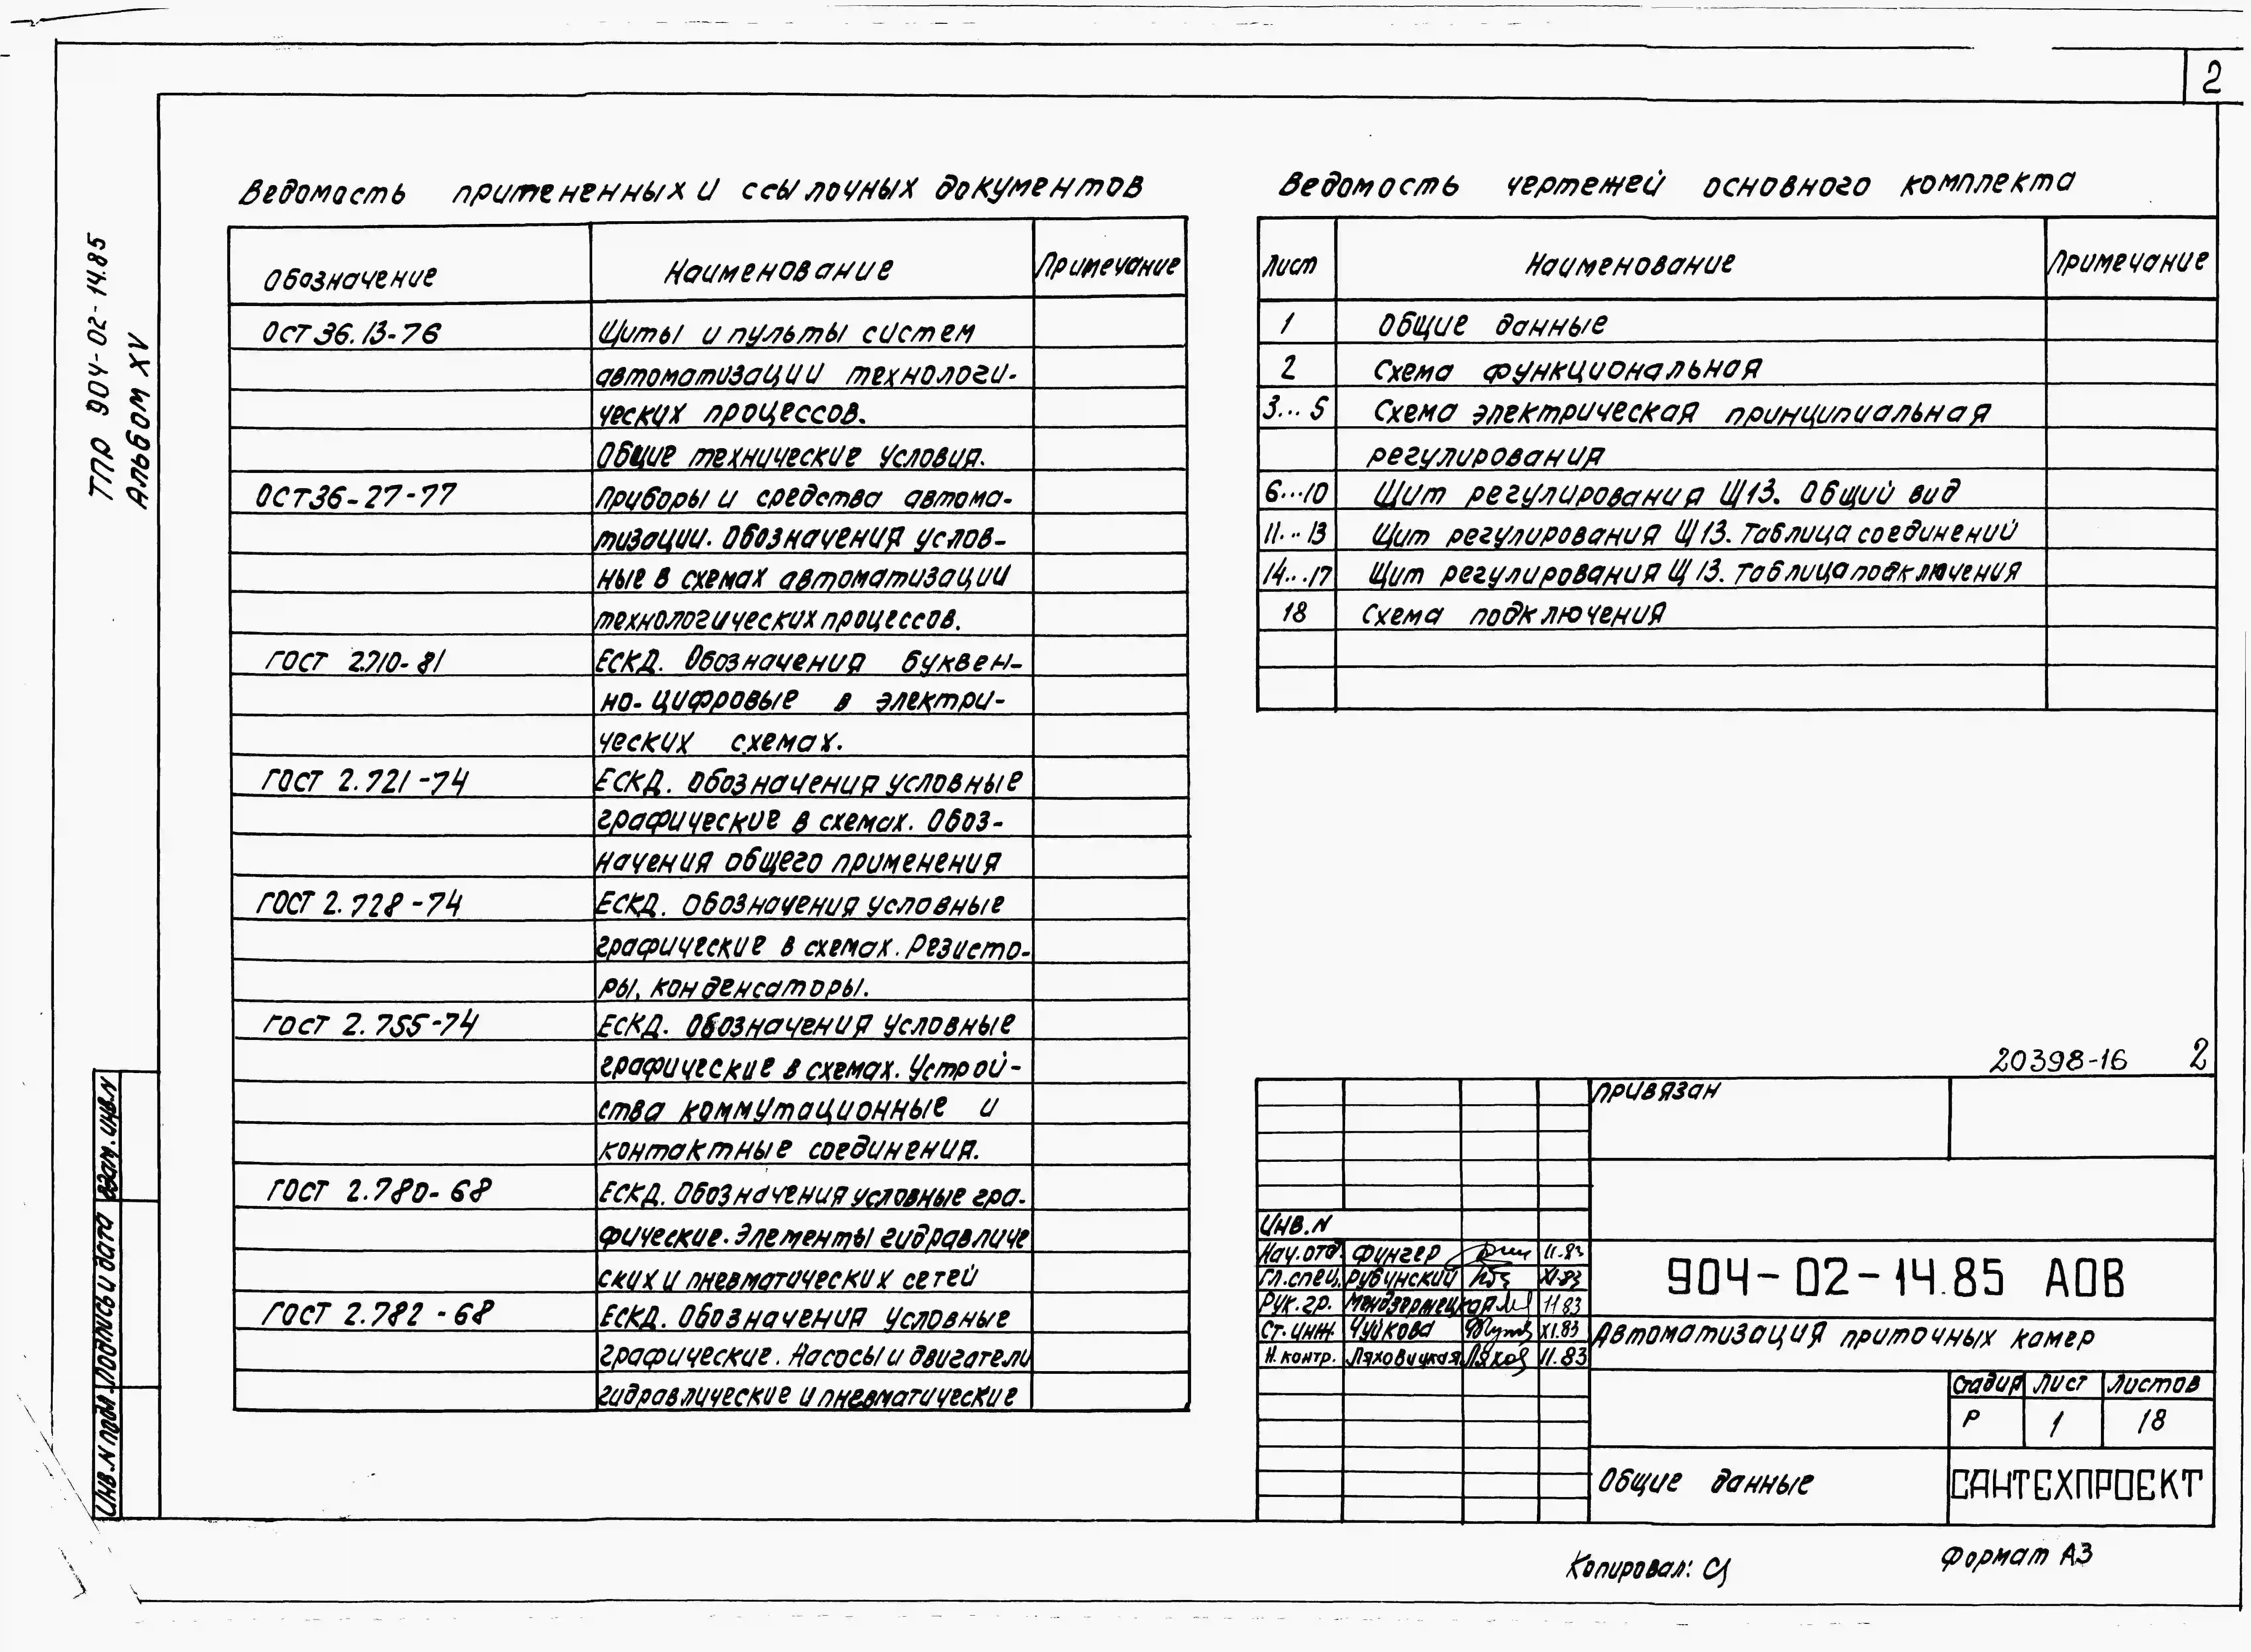 2
ТПР 904-02-14.85
Альбом XV
Ведомость примененных и ссылочных документов
Обозначение Наименование Примечание
ОСТ 36.13-76 Щиты и пульты систем
автоматизации технологи-
ческих процессов.
Общие технические условия.
ОСТ36-27-77 Приборы и средства автома-
тизации. Обозначения услов-
ные в схемах автоматизации
технологических процессов.
ГОСТ 2.710-81 ЕСКД. Обозначения буквен-
но-цифровые в электри-
ческих схемах.
ГОСТ 2.721-74 ЕСКД. Обозначения условные
графические в схемах. Обоз-
начения общего применения
ГОСТ 2.728-74 ЕСКД. Обозначения условные
графические в схемах. Резисто-
ры, конденсаторы.
ГОСТ 2.755-74 ЕСКД. Обозначения условные
графические в схемах. Устрой-
ства коммутационные и
контактные соединения.
ГОСТ 2.780-68 ЕСКД. Обозначения условные гра-
фические. Элементы гидравличе
ских и пневматических сетей
ГОСТ 2.782-68 ЕСКД. Обозначения условные
графические. Насосы и двигатели
гидравлические и пневматические
Ведомость чертежей основного комплекта
Лист Наименование Примечание
1 Общие данные
2 Схема функциональная
3...5 Схема электрическая принципиальная
регулирования
6...10 Щит регулирования Щ13. Общий вид
11...13 Щит регулирования Щ13. Таблица соединений
14...17 Щит регулирования Щ13. Таблица подключения
18 Схема подключения
20398-16 2
Привязан
Инв.N
Нач.отд. Фунгер 11.83
Гл.спец. Рубинский XI.83
Рук.гр. 11.83
Ст.инж. Чуйкова XI.83
Н.контр. Ляховицкая 11.83
904-02-14.85 АОВ
Автоматизация приточных камер
Стадия Лист Листов
Р 1 18
Общие данные
САНТЕХПРОЕКТ
Инв.N подл. Подпись и дата Взам.инв.N
Копировал:
Формат А3